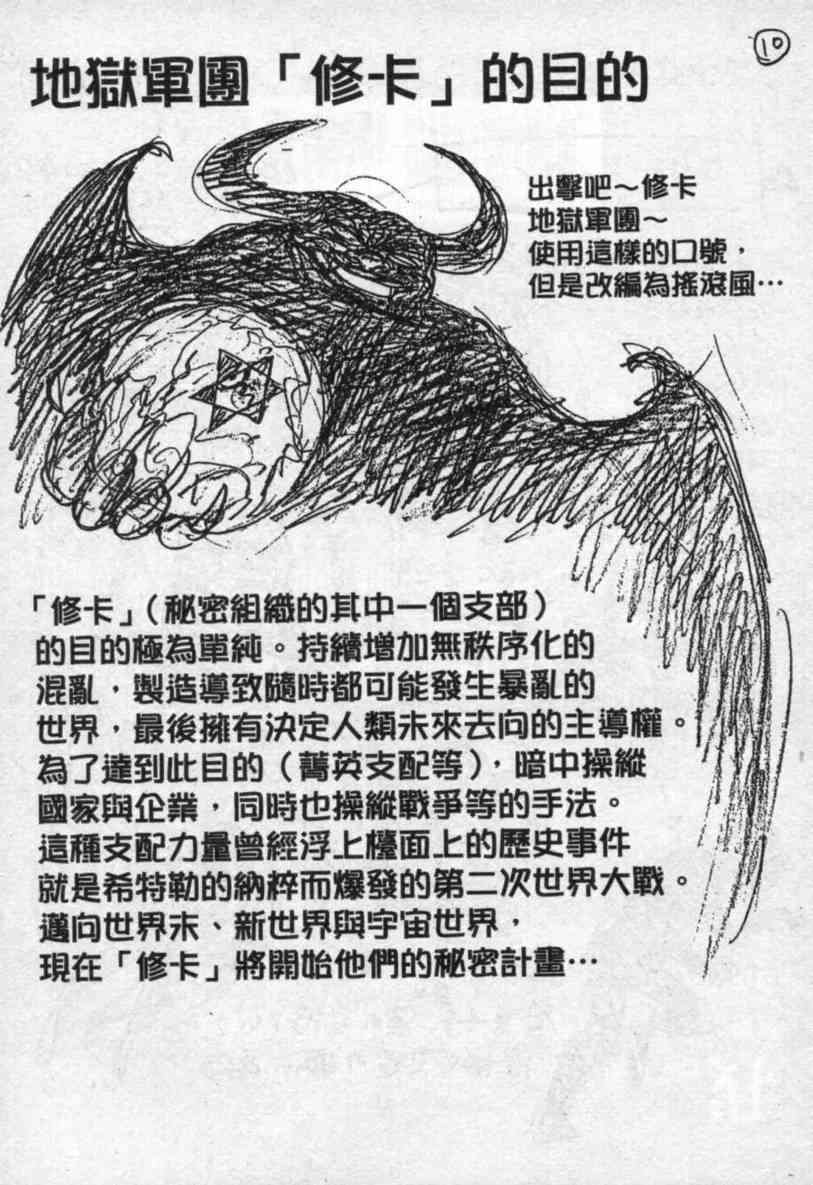 10
地獄軍團「修卡」的目的
出擊吧～修卡
地獄軍團～
使用這樣的口號，
但是改編為搖滾風…
「修卡」（秘密組織的其中一個支部）
的目的極為單純。持續增加無秩序化的
混亂，製造導致隨時都可能發生暴亂的
世界，最後擁有決定人類未來去向的主導權。
為了達到此目的（菁英支配等），暗中操縱
國家與企業，同時也操縱戰爭等的手法。
這種支配力量曾經浮上檯面上的歷史事件
就是希特勒的納粹而爆發的第二次世界大戰。
邁向世界末、新世界與宇宙世界，
現在「修卡」將開始他們的秘密計畫…